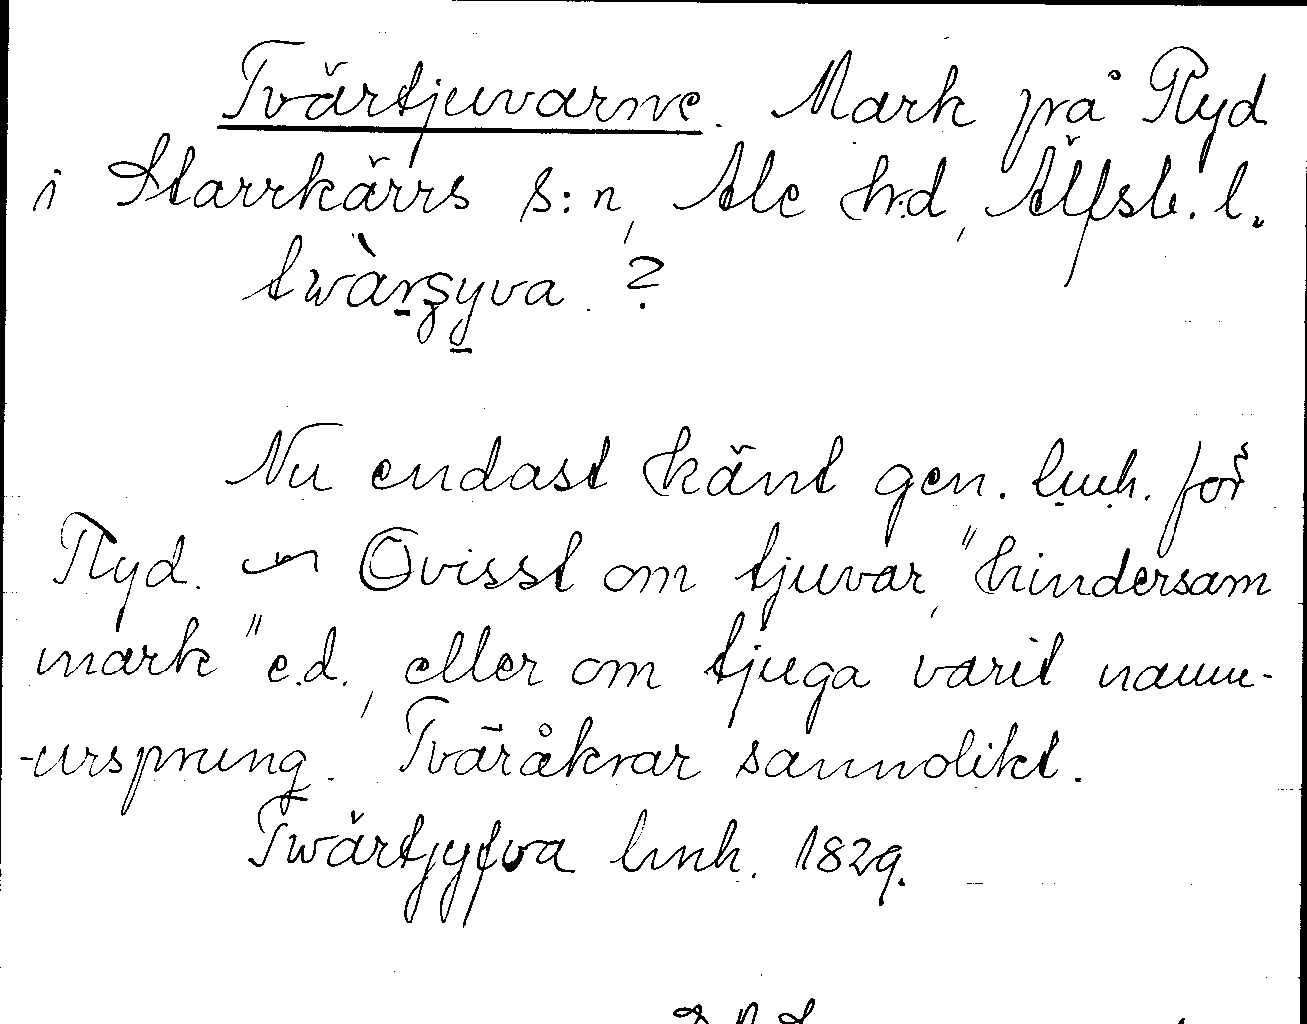 Tvärtjuvarne. Mark på Ryd
i Starrkärrs s:n, Ale h:d, Älfsb. l.
twàrşyva ?
Nu endast känt gen. lmh. för
Ryd. ~ Ovisst om tjuvar, "hindersam
mark" e.d., eller om tjuga varit namn-
-ursprung. Tväråkrar sannolikt.
Twärtjyfva lmh. 1829.